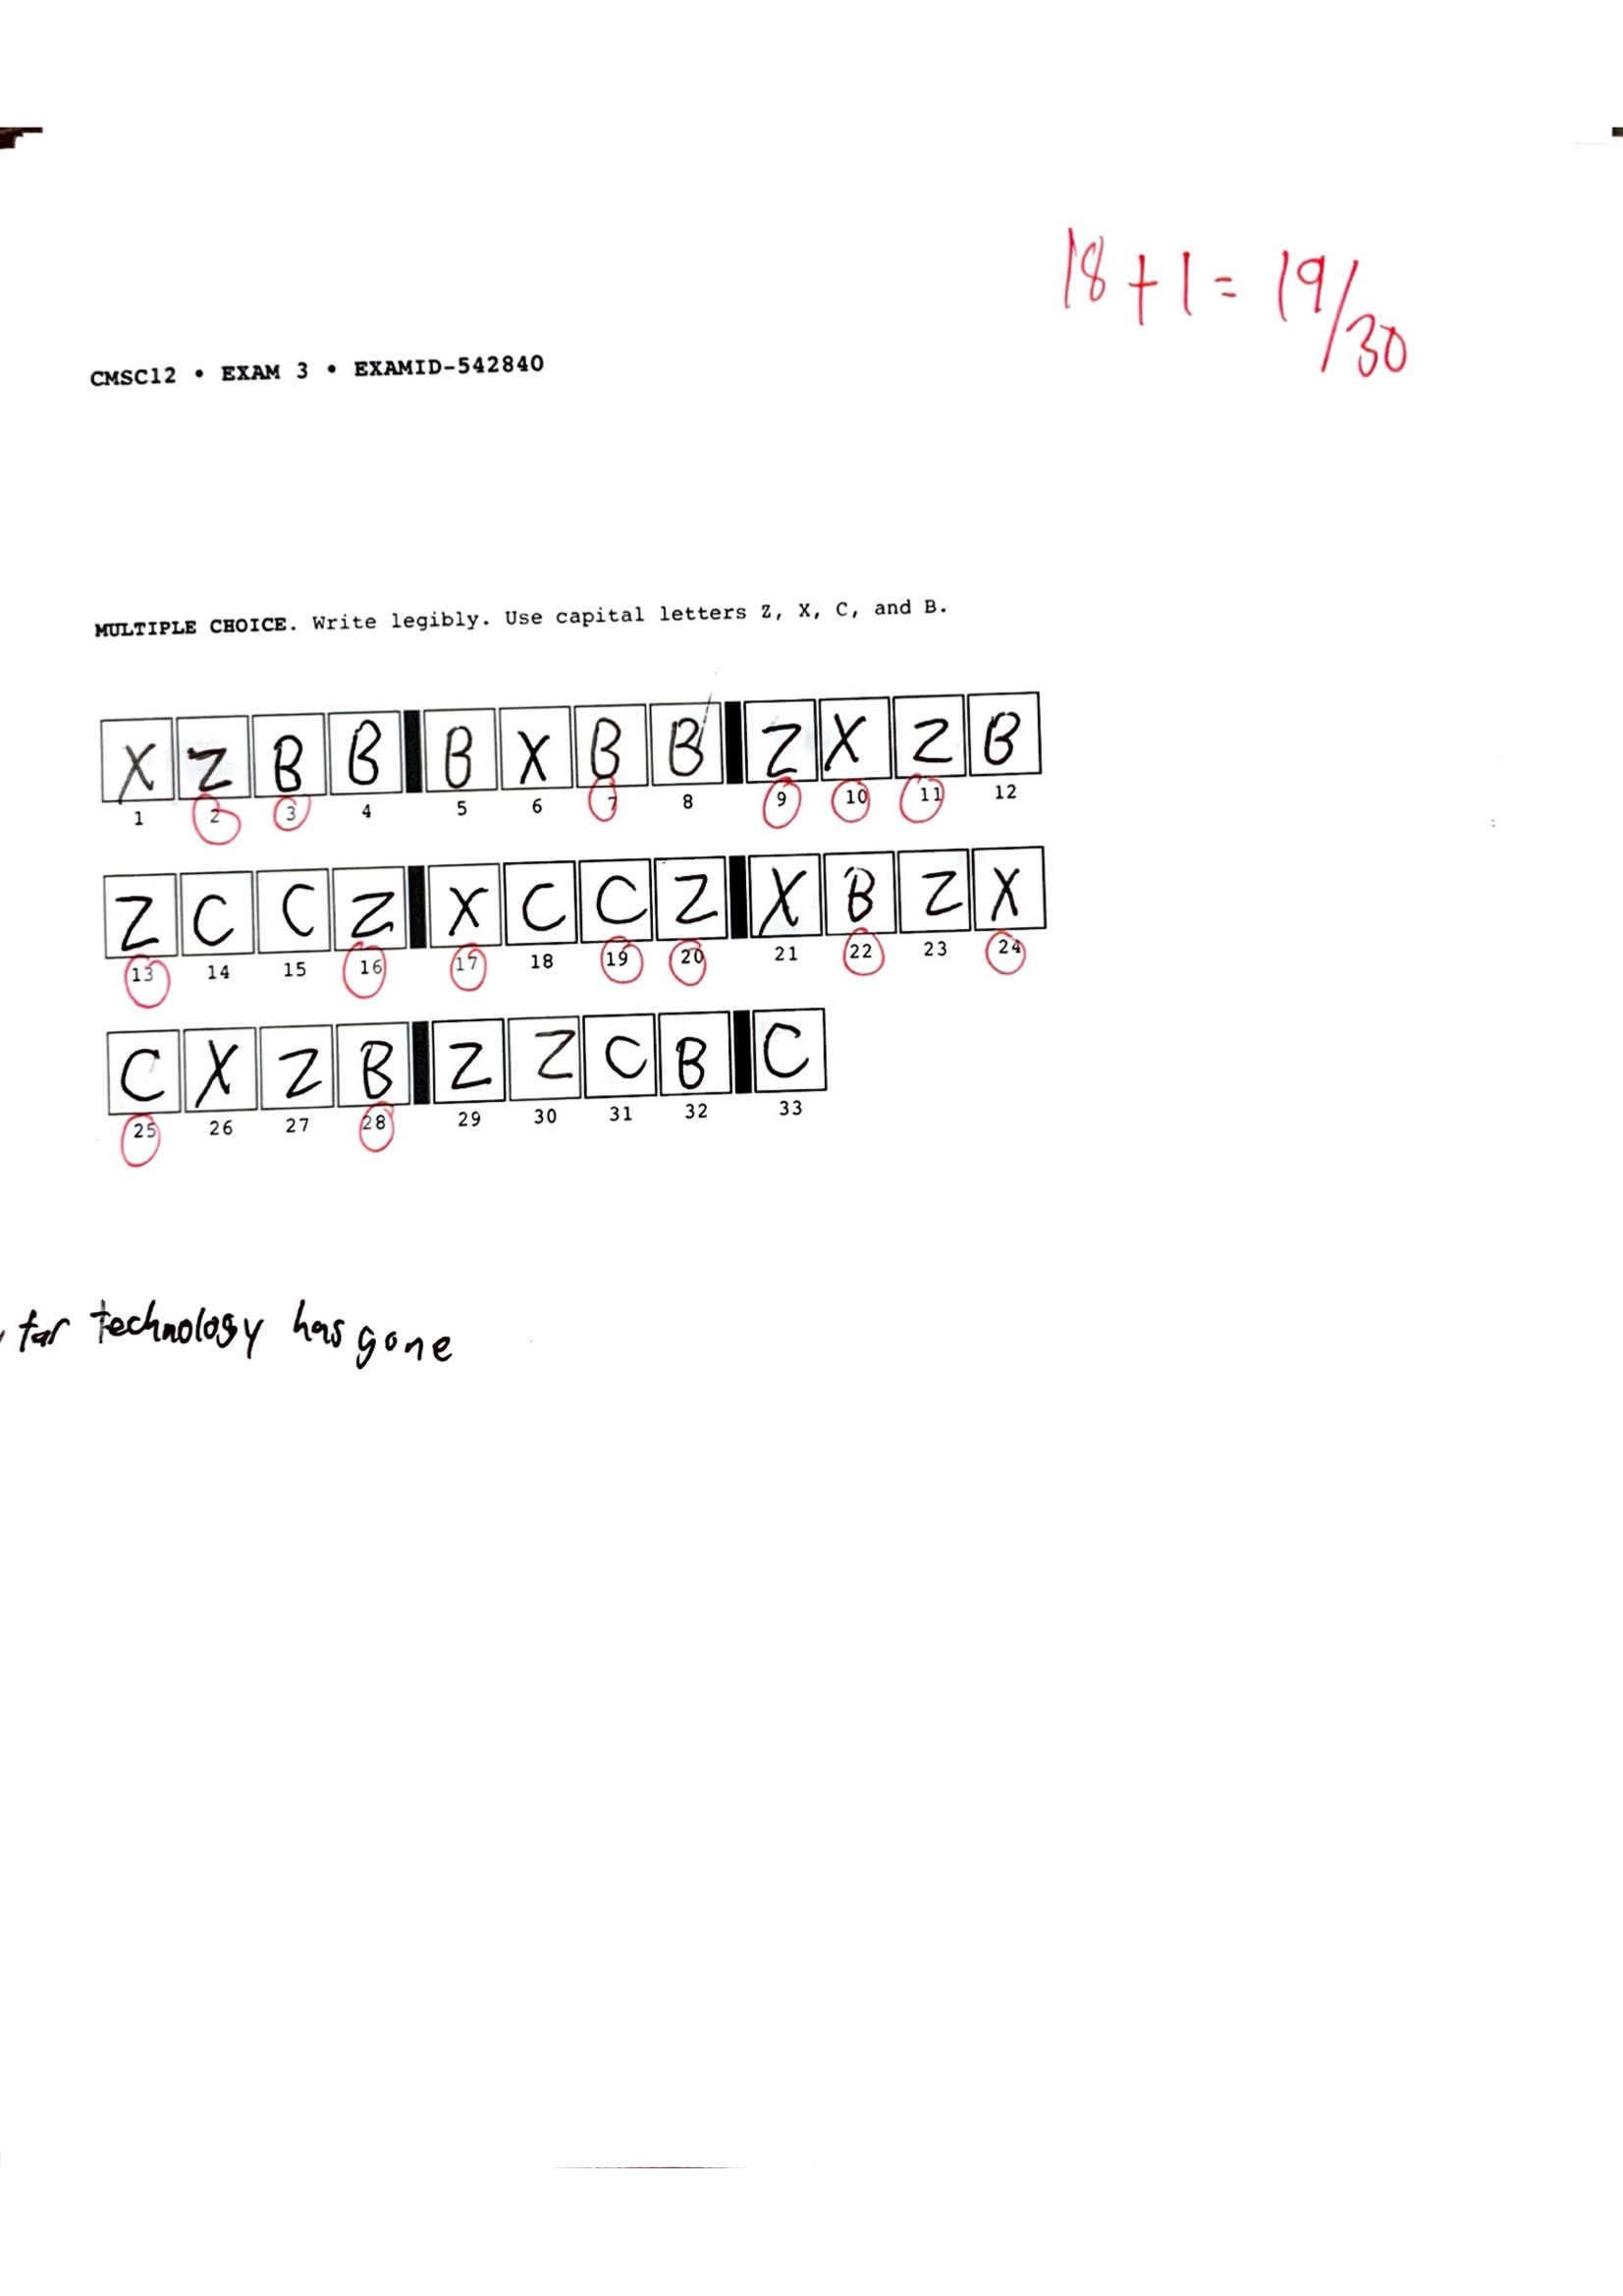 18 + 1 = 19/30
CMSC12 • EXAM 3 • EXAMID-542840
MULTIPLE CHOICE. Write legibly. Use capital letters Z, X, C, and B.
X Z B B B X B B Z X Z B
1 2 3 4 5 6 7 8 9 10 11 12
Z C C Z X C C Z X B Z X
13 14 15 16 17 18 19 20 21 22 23 24
C X Z B Z Z C B C
25 26 27 28 29 30 31 32 33
far technology has gone